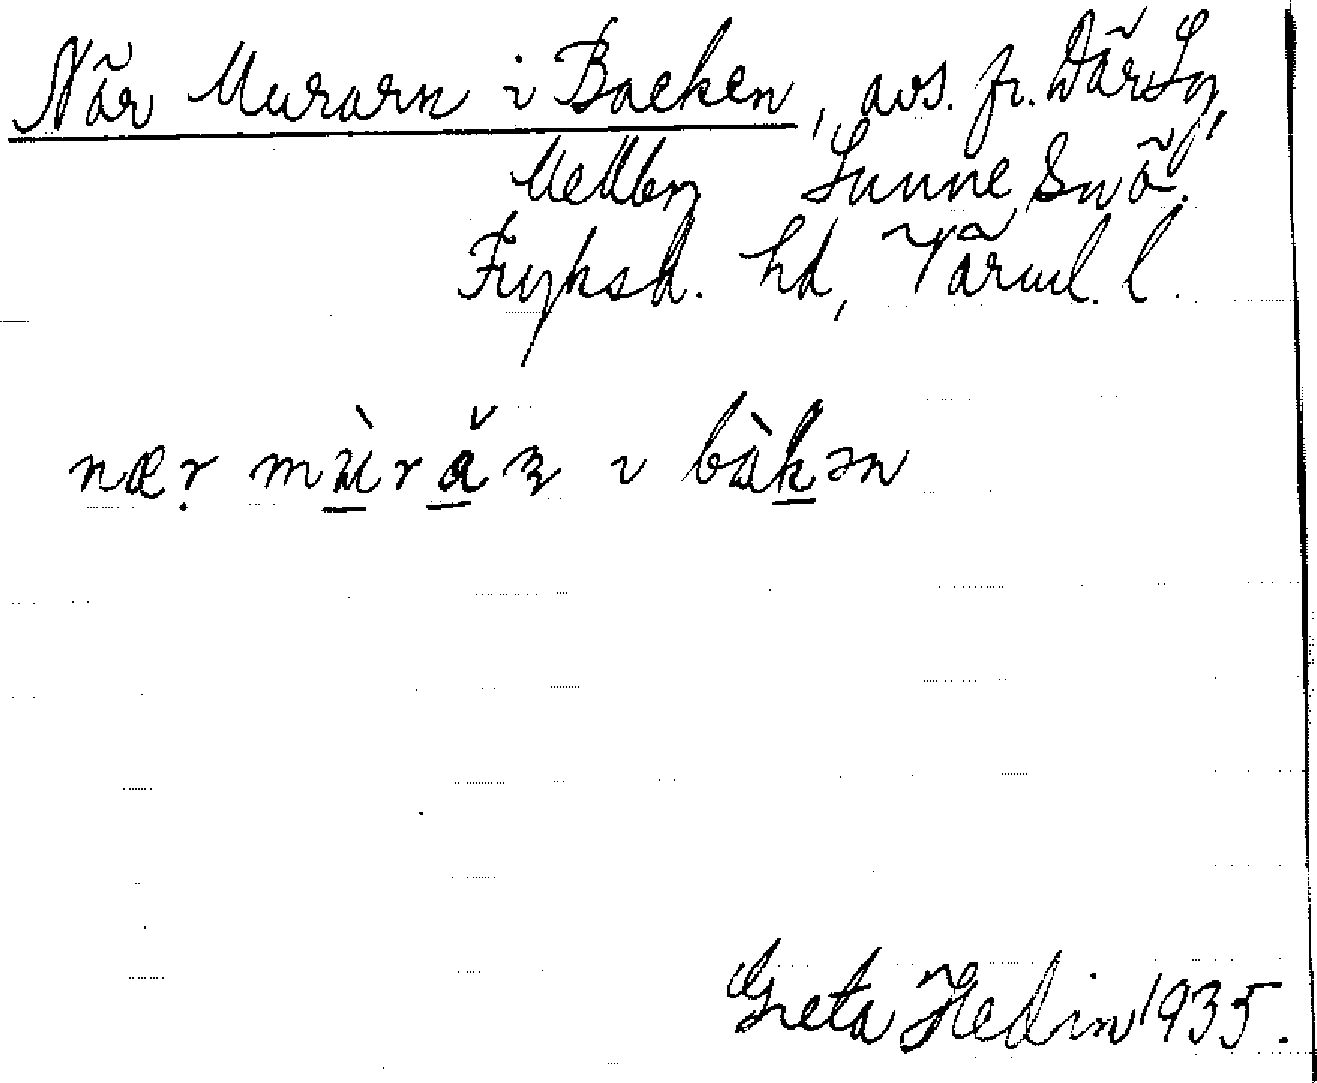 När Murarn i Backen, avs. fr. Där Sy,
Mellby Sunne Snö.
Fryksd. hd, Värml. l.
nær mùrăn i bàkən
Greta Hedin 1935.